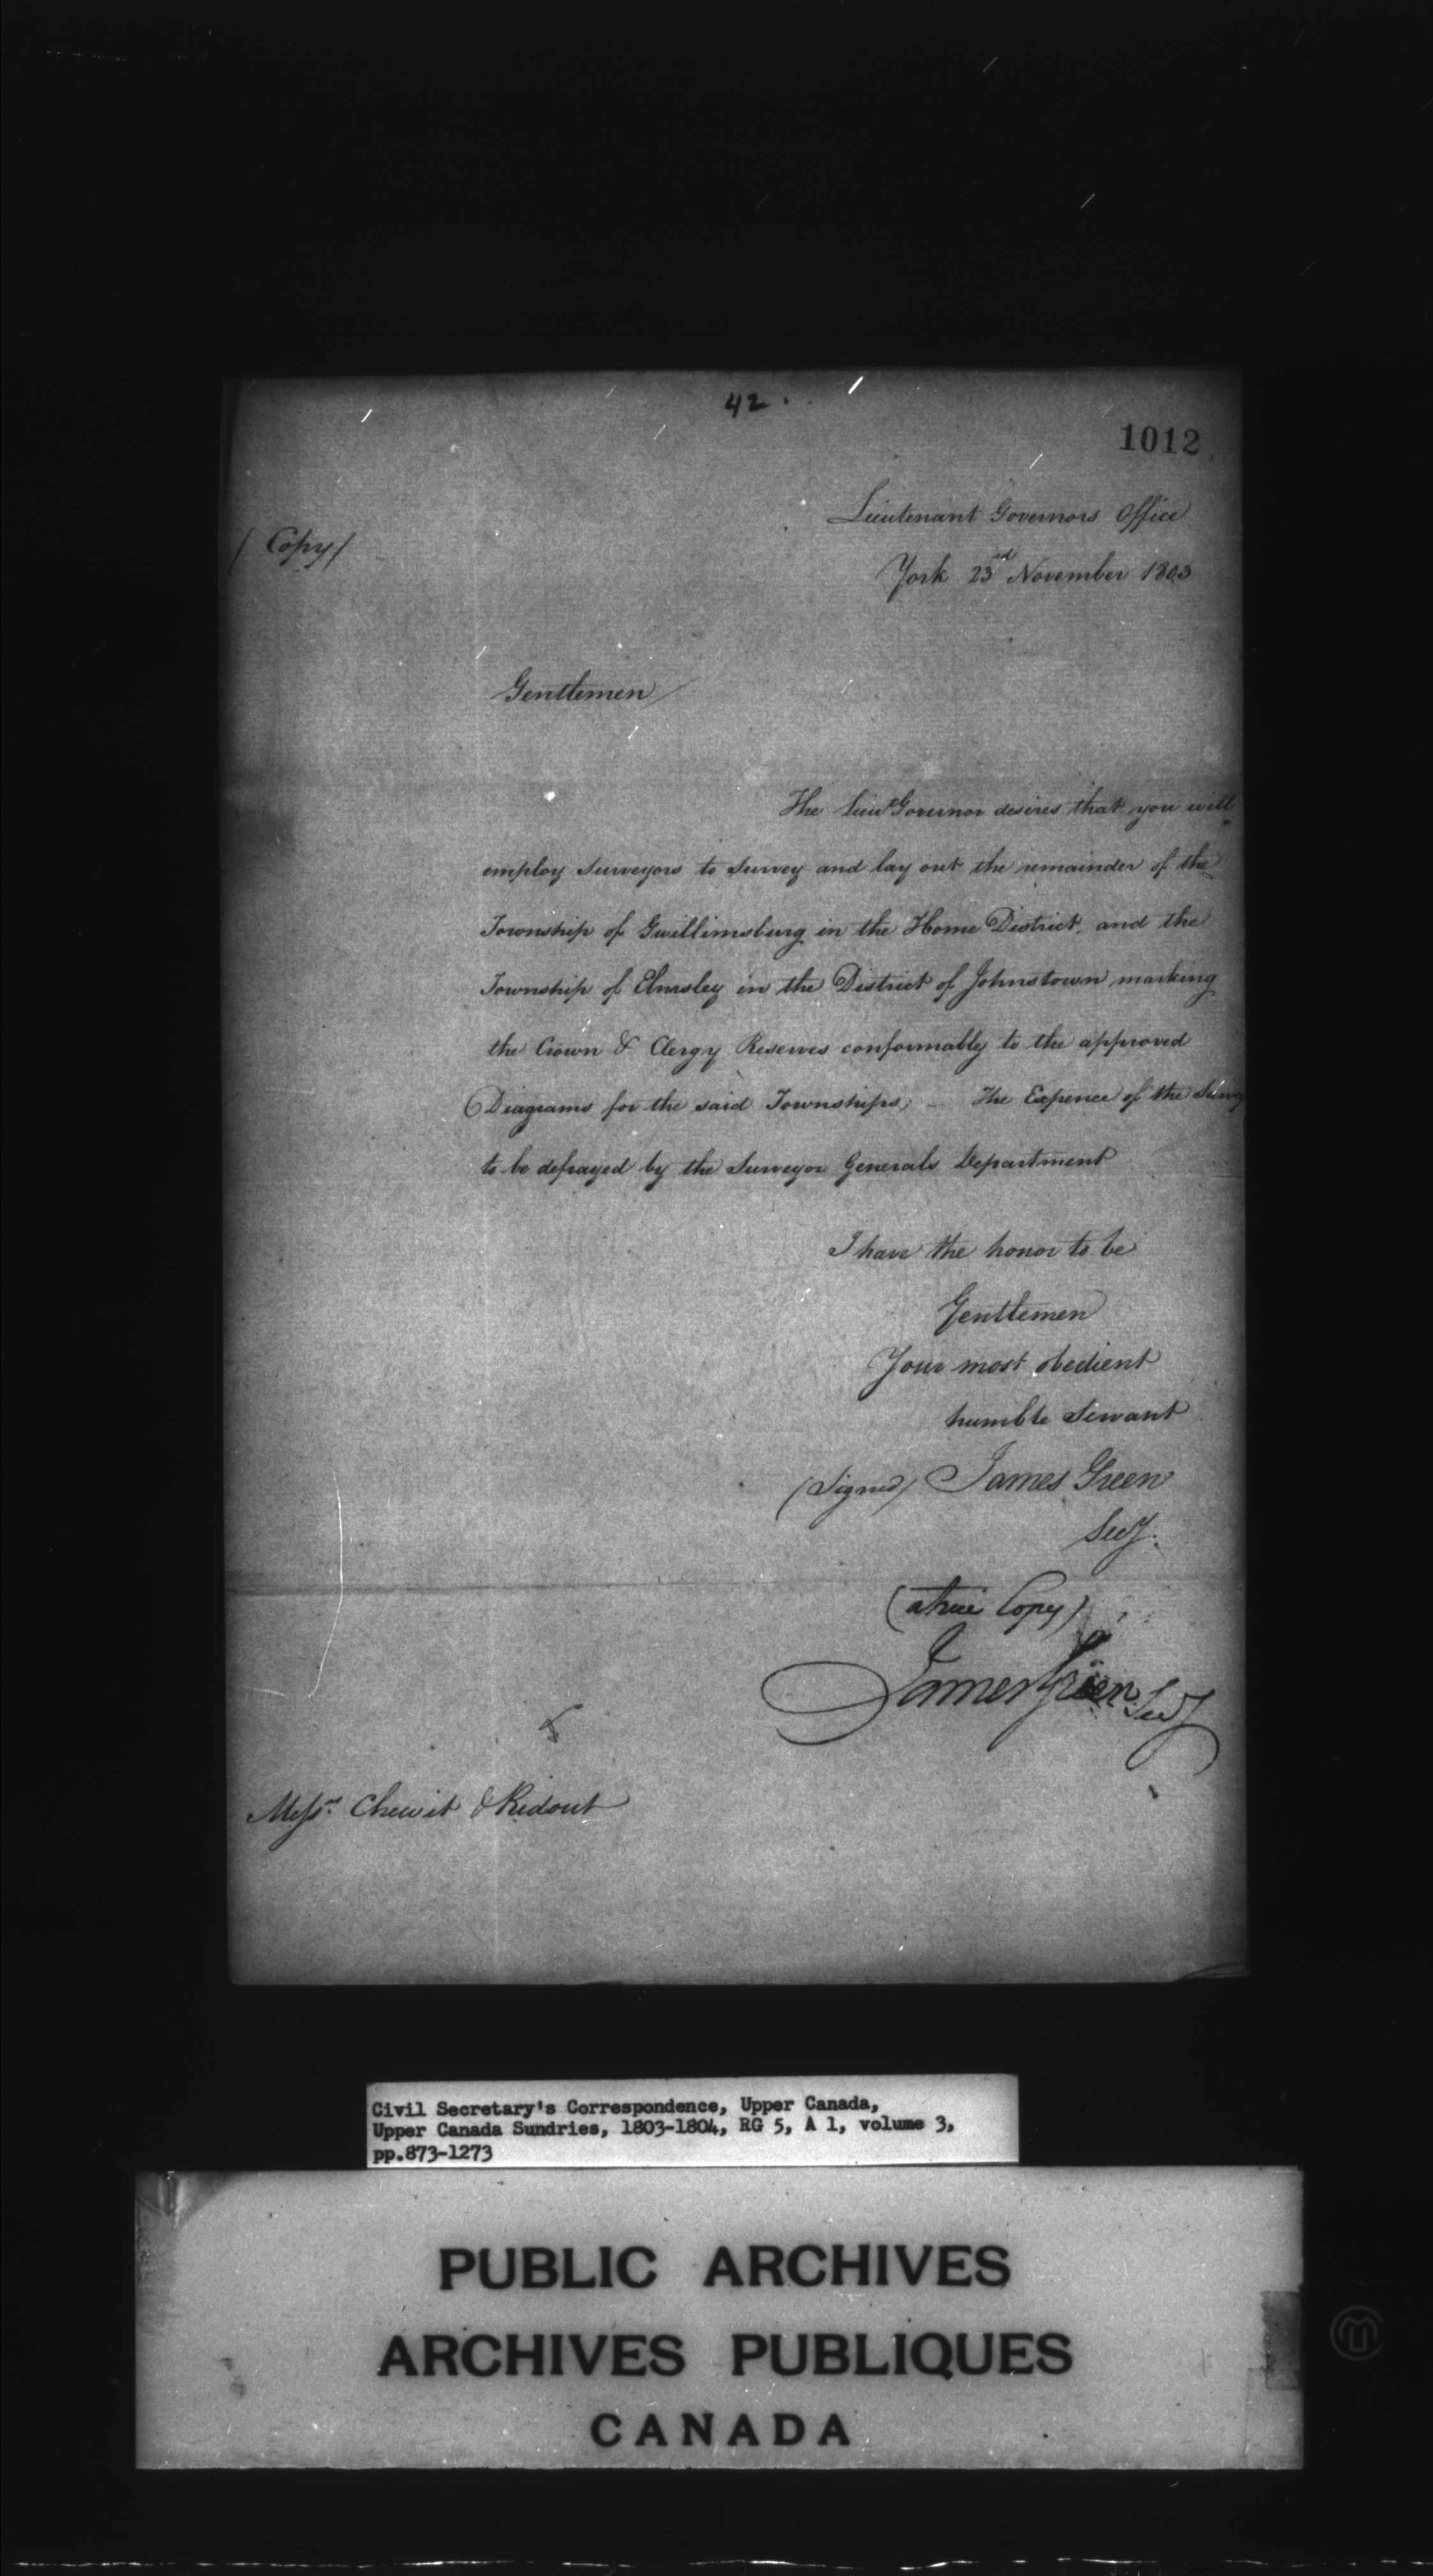 42.
1012
Lieutenant Governors Office
(Copy)
York 23rd November 1803
Gentlemen
The Lieut Governor desires that you will
employ Surveyors to Survey and lay out the remainder of the
Township of Gwillimsburg in the Home District, and the
Township of Elmsley in the District of Johnstown marking
the Crown & Clergy Reserves conformably to the approved
Diagrams for the said Townships; — The Expence of the Survey
to be defrayed by the Surveyor Generals Department
I have the honor to be
Gentlemen
Your most obedient
humble Servant
(Signed) James Green
Secy.
(a true Copy)
James Green Secy
Messrs. Chewit & Ridout
Civil Secretary's Correspondence, Upper Canada,
Upper Canada Sundries, 1803-1804, RG 5, A 1, volume 3,
pp.873-1273
PUBLIC ARCHIVES
ARCHIVES PUBLIQUES
CANADA